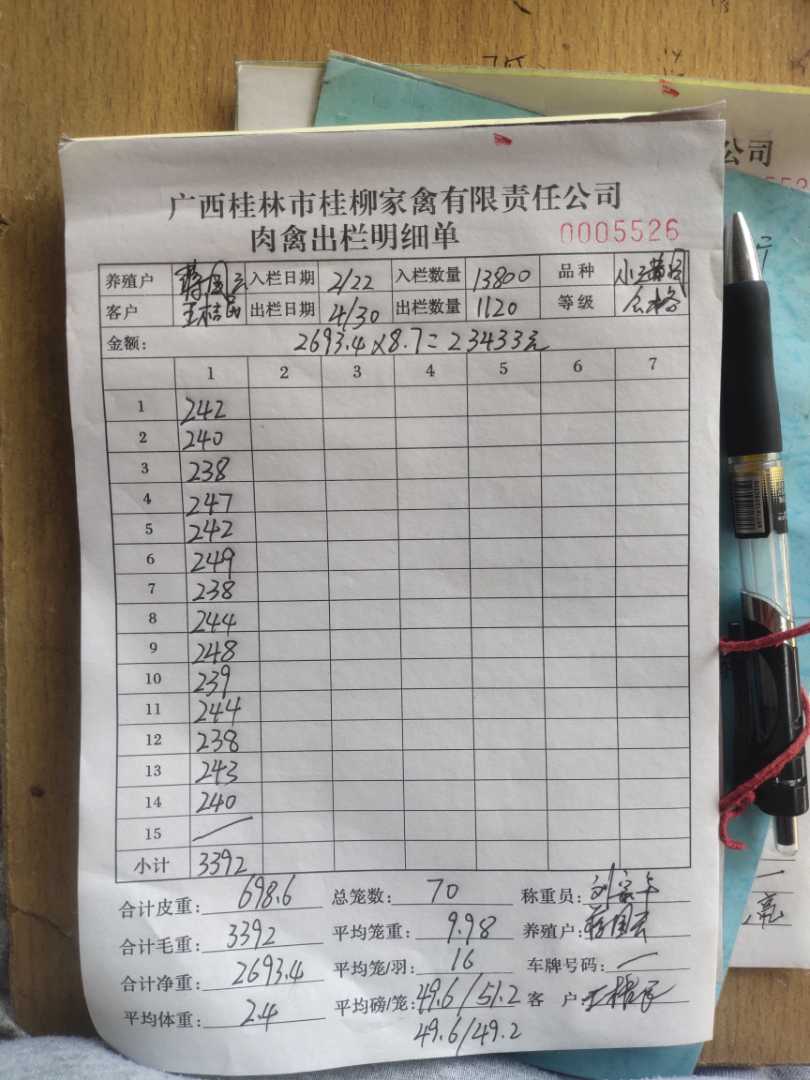 公司
广西桂林市桂柳家禽有限责任公司
肉禽出栏明细单 0005526
养殖户 蒋国云 入栏日期 2/22 入栏数量 13800 品种
客户 王桔 出栏日期 4/30 出栏数量 1120 等级 合格
金额： 2693.4×8.7=23433元
1 2 3 4 5 6 7
1 242
2 240
3 238
4 247
5 242
6 249
7 238
8 244
9 248
10 239
11 244
12 238
13 243
14 240
15 /
小计 3392
合计皮重： 698.6 总笼数： 70 称重员： 刘家
合计毛重： 3392 平均笼重： 9.98 养殖户： 蒋国云
合计净重： 2693.4 平均笼/羽： 16 车牌号码： /
平均体重： 2.4 平均磅/笼： 49.6/51.2 客 户 王
49.6/49.2